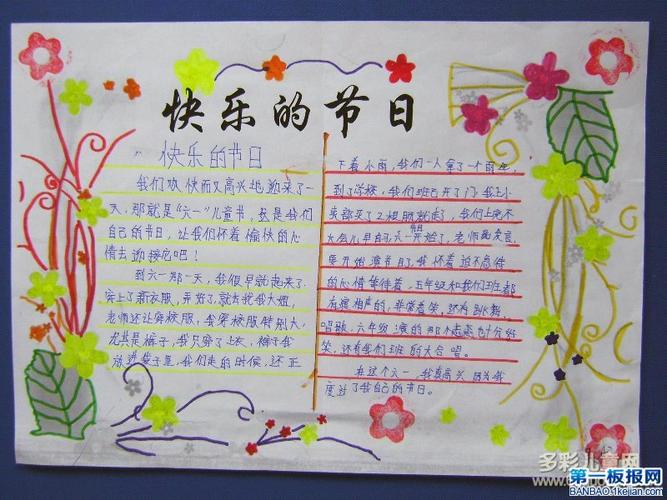 快乐的节日
快乐的节日
我们欢快而又高兴地迎来了一
天，那就是“六一”儿童节，这是我们
自己的节日，让我们怀着愉快的心
情去迎接它吧！
到六一那一天，我很早就起来了
穿上了新衣服，弄好了，就去找我大姐，
老师还让穿校服，我穿校服特别大，
尤其是裤子，我只穿了上衣，裤子我
放进袋子里，我们走的时候，还正
下着小雨，我们一人拿了一个雨伞，
到了学校，我们班已开了门，我上小
卖部买了2根就走了，我们上完不
大会儿早自习六一开始了，老师发言，
要开始演节目了，我怀着迫不急待
的心情等待着，五年级和我们班都
有演相声的，非常着笑，还有跳舞，
唱歌，六年级演的那个计分给
笑，还有我们班的大合唱。
在这个六一，我真高兴，因为我
度过了我自己的节日。
多彩儿童网
第一板报网
BANBAO.1kejian.com